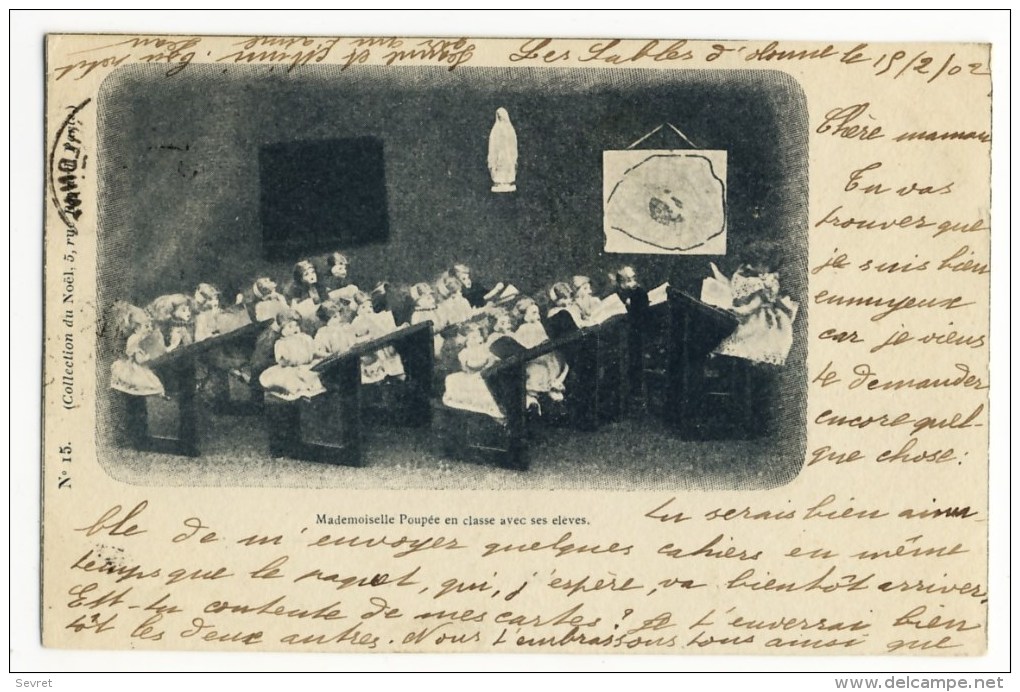 Les Sables d'Olonne le 15/2/02
Chère maman
Tu vas
trouver que
je suis bien
ennuyeux
car je viens
te demander
encore quel-
que chose:
tu serais bien aima-
ble de m'envoyer quelques cahiers en même
temps que le paquet, qui, j'espère, va bientôt arriver.
Est-tu contente de mes cartes? Je t'enverrai bien
tôt les deux autres. Nous t'embrassons tous ainsi que
t'aime
Jean
Mademoiselle Poupée en classe avec ses elèves.
N° 15. (Collection du Noël, 5, rue
Sevret
www.delcampe.net